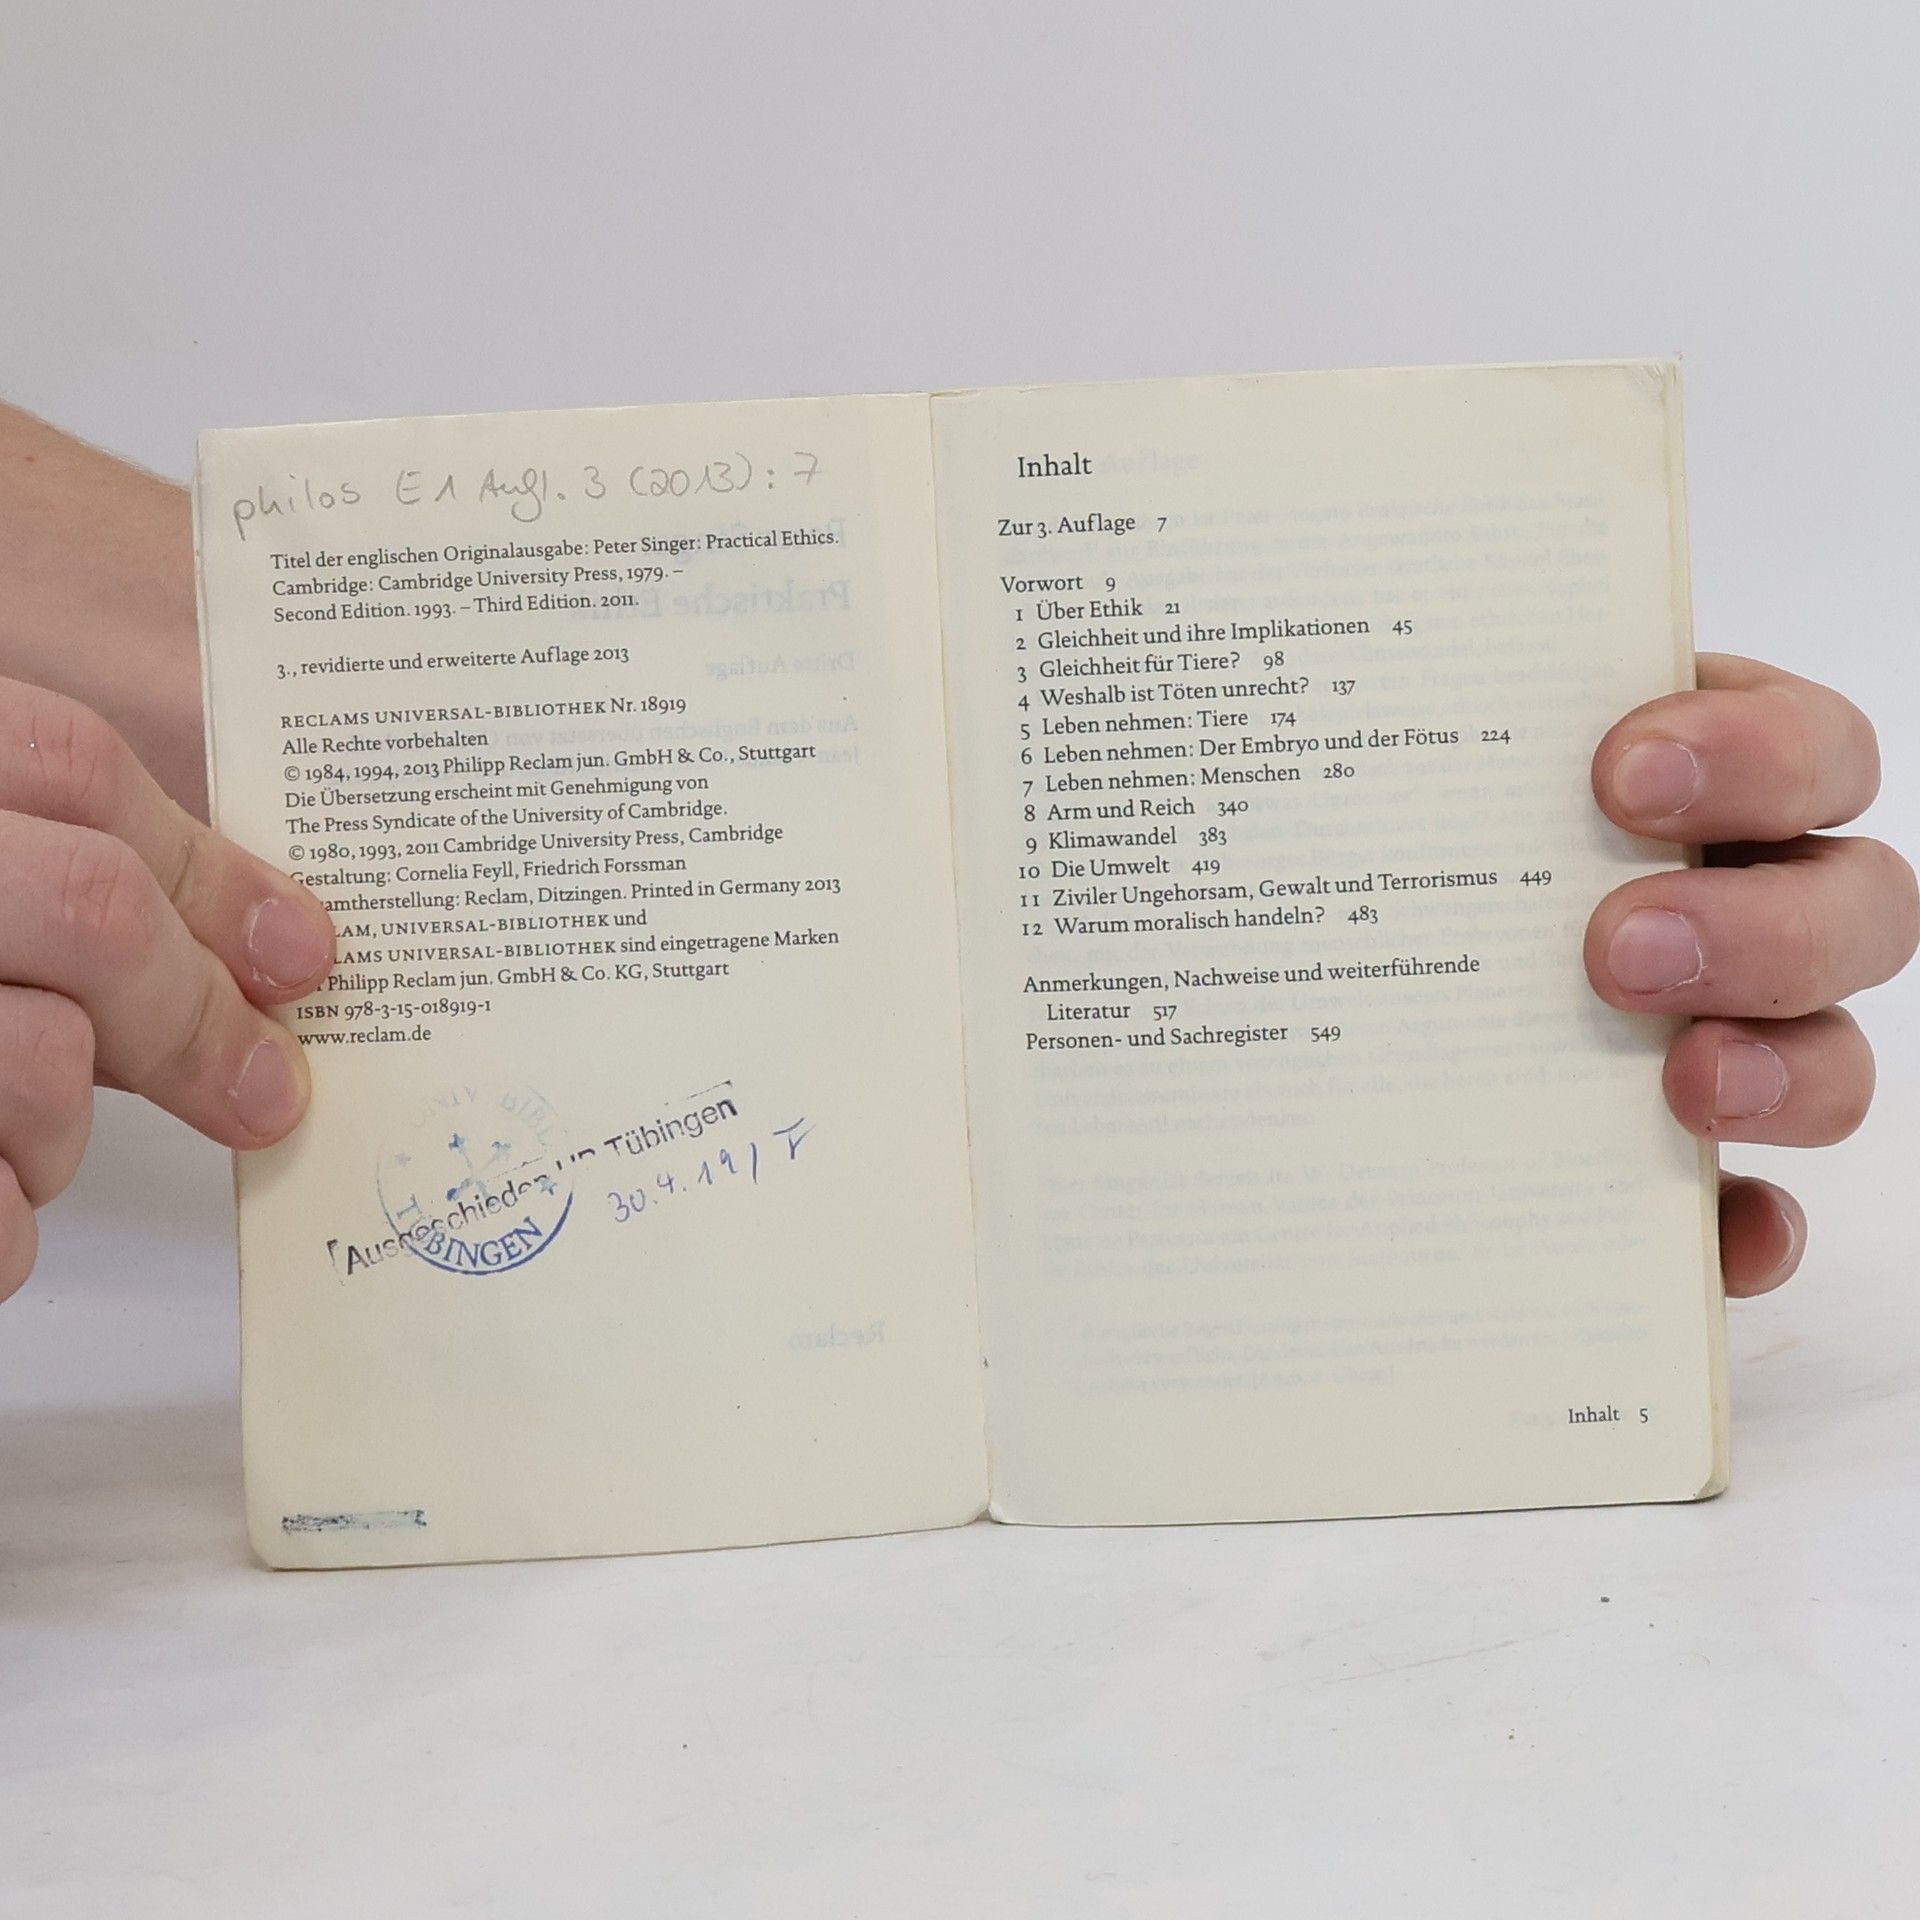 philos E 1 Aufl. 3 (2013): 7
Titel der englischen Originalausgabe: Peter Singer: Practical Ethics.
Cambridge: Cambridge University Press, 1979. –
Second Edition. 1993. – Third Edition. 2011.
3., revidierte und erweiterte Auflage 2013
RECLAMS UNIVERSAL-BIBLIOTHEK Nr. 18919
Alle Rechte vorbehalten
© 1984, 1994, 2013 Philipp Reclam jun. GmbH & Co., Stuttgart
Die Übersetzung erscheint mit Genehmigung von
The Press Syndicate of the University of Cambridge.
© 1980, 1993, 2011 Cambridge University Press, Cambridge
Gestaltung: Cornelia Feyll, Friedrich Forssman
amtherstellung: Reclam, Ditzingen. Printed in Germany 2013
LAM, UNIVERSAL-BIBLIOTHEK und
LAMS UNIVERSAL-BIBLIOTHEK sind eingetragene Marken
Philipp Reclam jun. GmbH & Co. KG, Stuttgart
ISBN 978-3-15-018919-1
www.reclam.de
Ausgeschieden UB Tübingen
30.4.19/
TÜBINGEN
Inhalt
Zur 3. Auflage 7
Vorwort 9
1 Über Ethik 21
2 Gleichheit und ihre Implikationen 45
3 Gleichheit für Tiere? 98
4 Weshalb ist Töten unrecht? 137
5 Leben nehmen: Tiere 174
6 Leben nehmen: Der Embryo und der Fötus 224
7 Leben nehmen: Menschen 280
8 Arm und Reich 340
9 Klimawandel 383
10 Die Umwelt 419
11 Ziviler Ungehorsam, Gewalt und Terrorismus 449
12 Warum moralisch handeln? 483
Anmerkungen, Nachweise und weiterführende
Literatur 517
Personen- und Sachregister 549
Inhalt 5